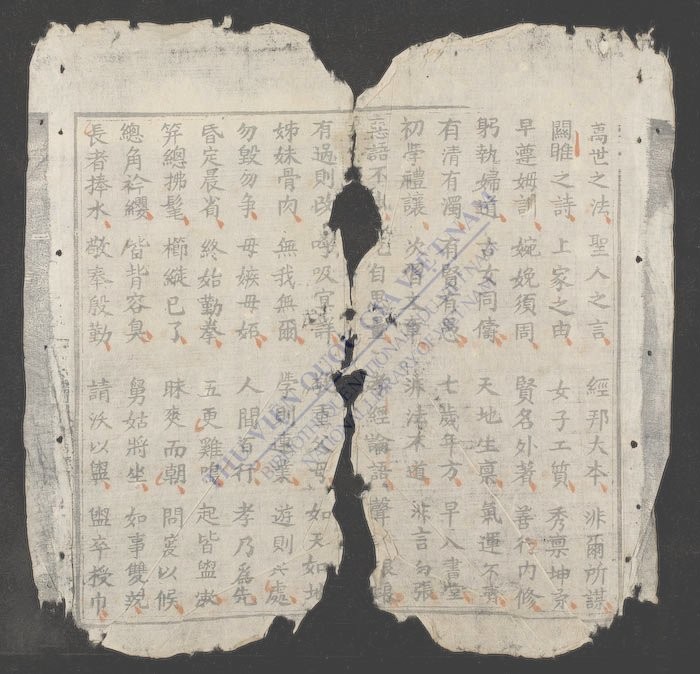 萬世之法 聖人之言 經邦大本 非爾所謀
關雎之詩 上家之由 女子工質 秀禀坤柔
早遵姆訓 婉娩須周 賢名外著 善行內修
躬執婦道 古女同儔 天地生禀 氣運不齊
有清有濁 有賢有愚 七歲年方 早入書堂
初學禮讓 次習文章 非法不道 非言勿張
語不 自 孝經論語 聲
有過則改 呼吸宜詳 重父母 如天如地
姊妹骨肉 無我無爾 學則專業 遊則共處
勿毀勿爭 毋嫉毋妬 人間百行 孝乃爲先
昏定晨省 終始勤拳 五更雞鳴 起皆盥漱
笄總拂髦 櫛縰已了 昧爽而朝 問寢以候
總角衿纓 皆背容臭 舅姑將坐 如事雙
長者捧水 敬奉殷勤 請沃以盥 盥卒授巾
THƯ VIỆN QUỐC GIA VIỆT NAM
NATIONAL LIBRARY OF VIETNAM